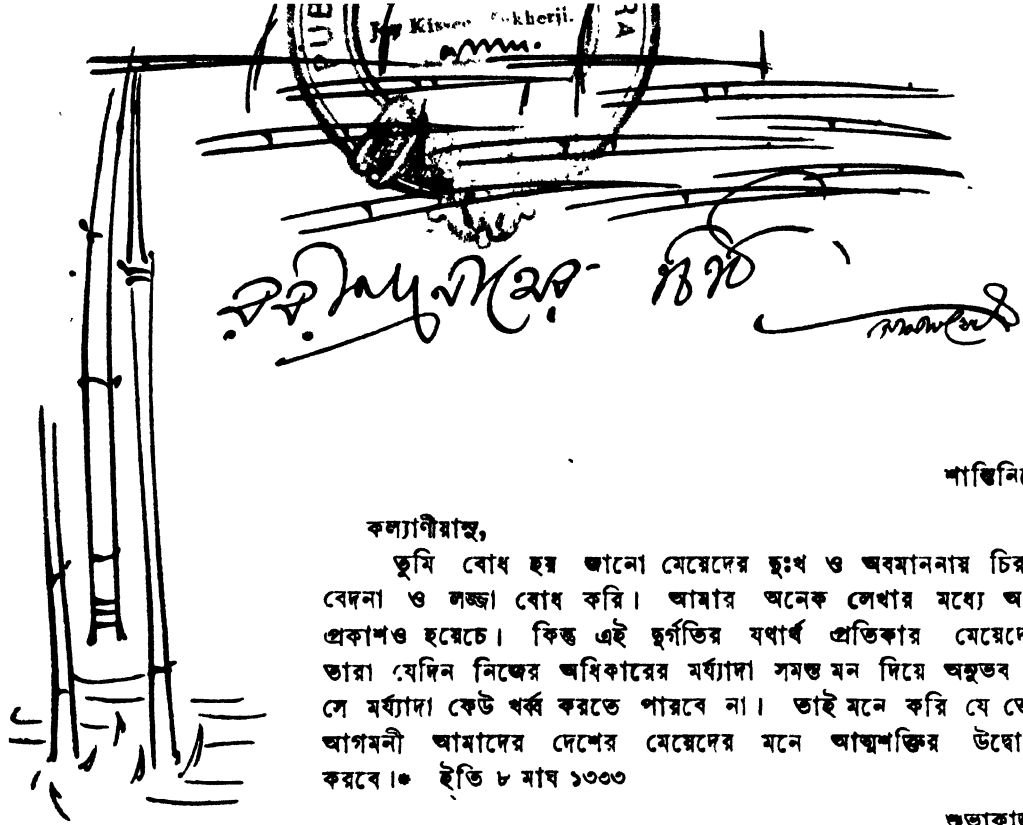 Joy Kissen Mukherji.
রবীন্দ্রনাথের চিঠি
শান্তিনি
কল্যাণীয়াসু,
তুমি বোধ হয় জানো মেয়েদের দুঃখ ও অবমাননায় চির
বেদনা ও লজ্জা বোধ করি। আমার অনেক লেখার মধ্যে অ
প্রকাশও হয়েচে। কিন্তু এই দুর্গতির যথার্থ প্রতিকার মেয়েদে
তারা যেদিন নিজের অধিকারের মর্য্যাদা সমস্ত মন দিয়ে অনুভব
সে মর্য্যাদা কেউ খর্ব্ব করতে পারবে না। তাই মনে করি যে তো
আগমনী আমাদের দেশের মেয়েদের মনে আত্মশক্তির উদ্বো
করবে।* ইতি ৮ মাঘ ১৩৩৩
শুভাকাঙ্